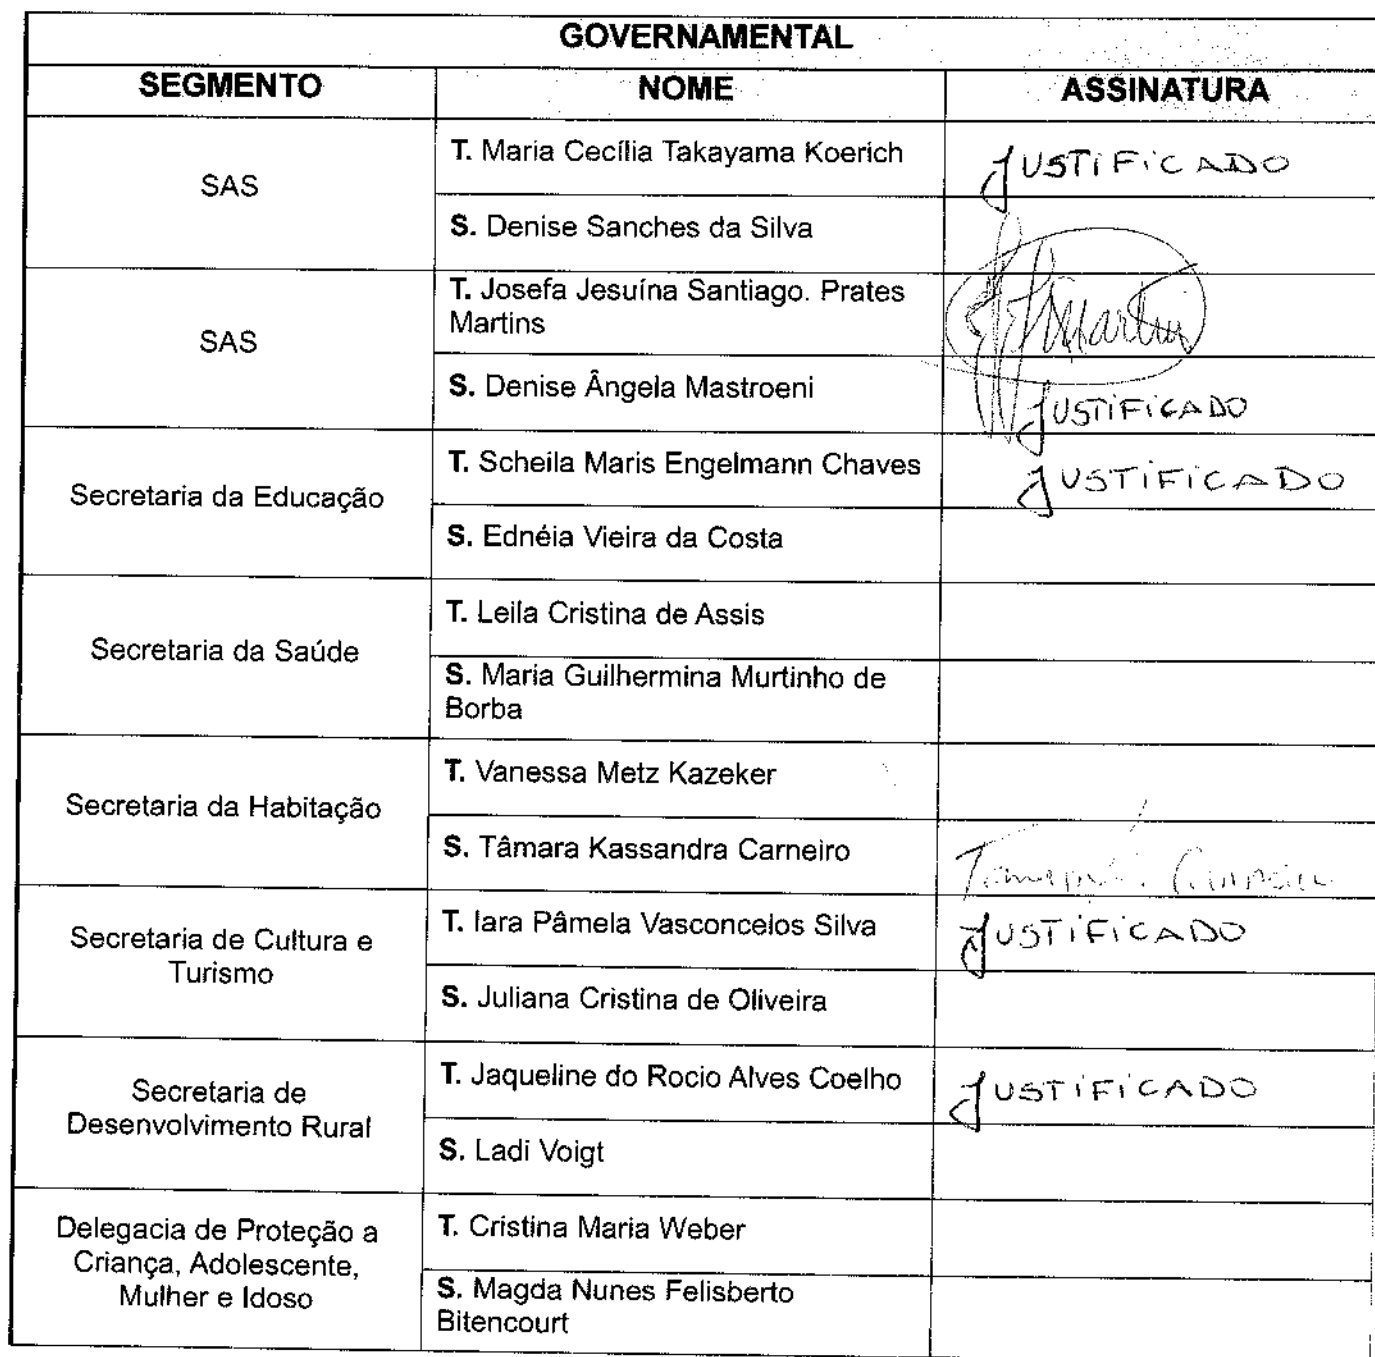 GOVERNAMENTAL
SEGMENTO NOME ASSINATURA
SAS
T. Maria Cecília Takayama Koerich JUSTIFICADO
S. Denise Sanches da Silva
SAS
T. Josefa Jesuína Santiago. Prates
Martins
Martins
S. Denise Ângela Mastroeni JUSTIFICADO
Secretaria da Educação
T. Scheila Maris Engelmann Chaves JUSTIFICADO
S. Ednéia Vieira da Costa
Secretaria da Saúde
T. Leila Cristina de Assis
S. Maria Guilhermina Murtinho de
Borba
Secretaria da Habitação
T. Vanessa Metz Kazeker
S. Tâmara Kassandra Carneiro
Secretaria de Cultura e
Turismo
T. Iara Pâmela Vasconcelos Silva JUSTIFICADO
S. Juliana Cristina de Oliveira
Secretaria de
Desenvolvimento Rural
T. Jaqueline do Rocio Alves Coelho JUSTIFICADO
S. Ladi Voigt
Delegacia de Proteção a
Criança, Adolescente,
Mulher e Idoso
T. Cristina Maria Weber
S. Magda Nunes Felisberto
Bitencourt